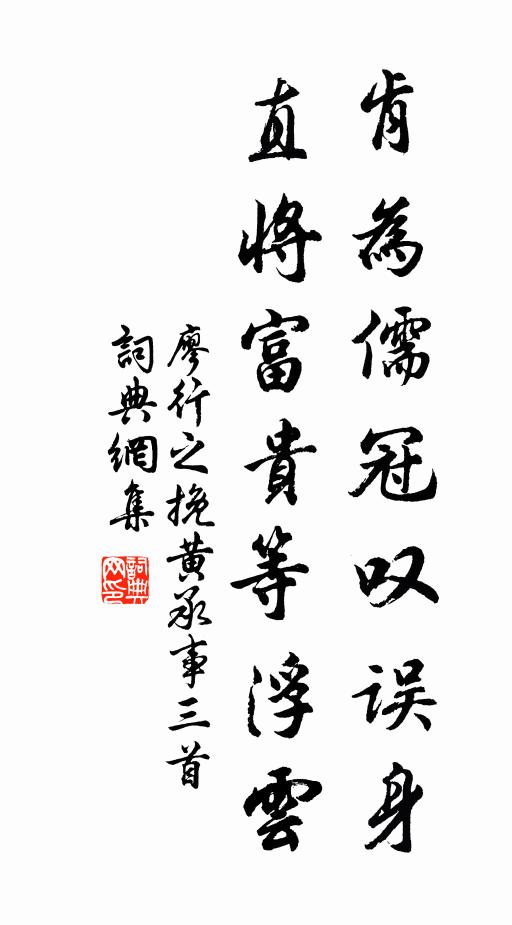 肯為儒冠叹误身
直將富貴等浮雲
廖行之挽黄承事三首
詞典網集
詞典网印